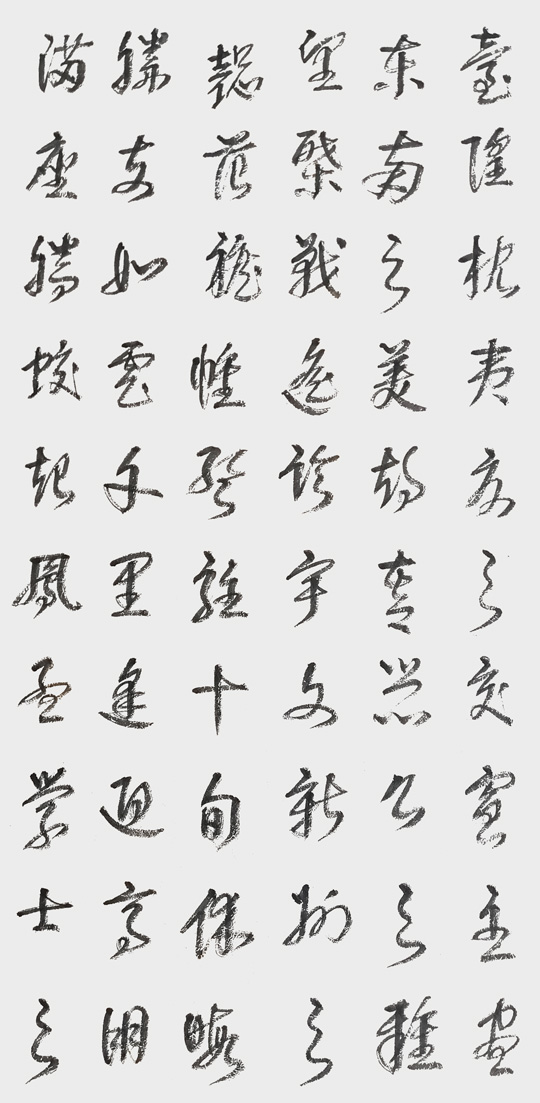 臺隍枕夷夏之交賓主盡
東南之美都督閻公之雅
望棨戟遙臨宇文新州之
懿範襜帷暫駐十旬休暇
勝友如雲千里逢迎高朋
滿座騰蛟起鳳孟學士之